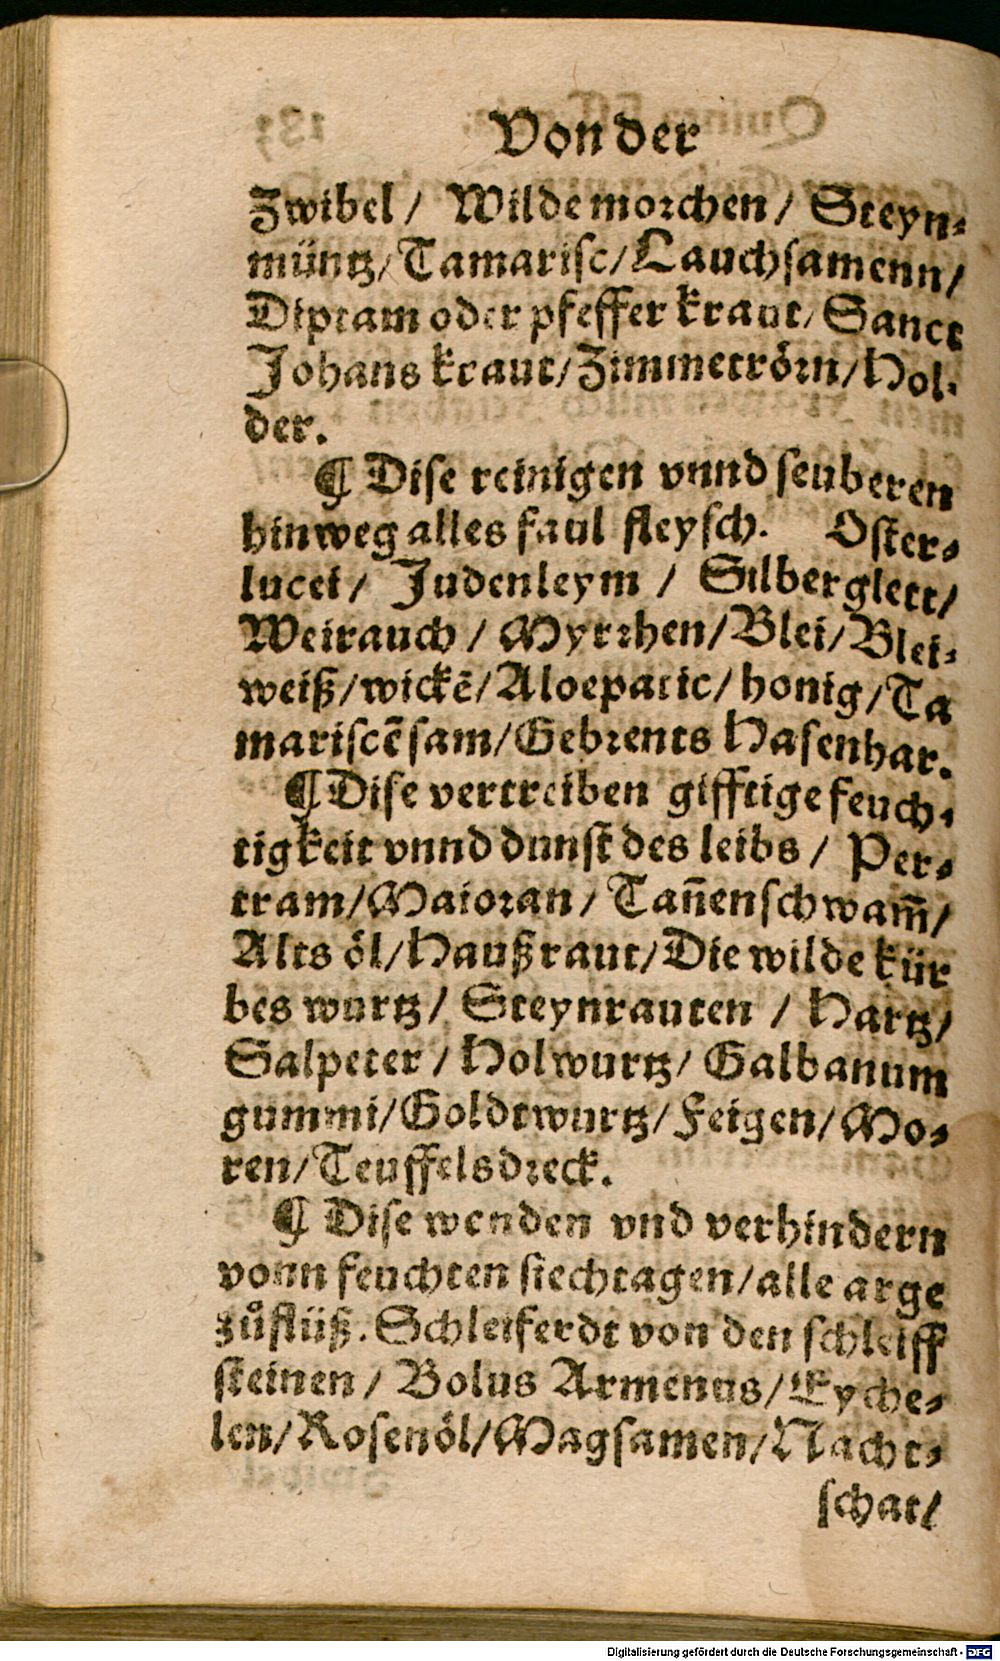 Von der
Zwibel/ Wilde morchen/ Steyn-
müntz/ Tamarisc/ Lauchsamenn/
Diptam oder pfeffer kraut/ Sanct
Johans kraut/ Zimmetrörn/ Hol-
der.
¶ Dise reinigen vnnd seuberen
hinweg alles faul fleysch. Oster-
lucei/ Judenleym / Silberglett/
Weirauch / Myrrhen/ Blei/ Blei-
weiß/ wickē/ Aloepatic/ honig/ Ta
mariscē sam/ Gebrents Hasenhar.
¶ Dise vertreiben gifftige feuch-
tigkeit vnnd dunst des leibs / Per-
tram/ Maioran/ Tañenschwam̃/
Alts öl/ Haußraut/ Die wilde kür
bes wurtz/ Steynrauten / Hartz/
Salpeter / Holwurtz/ Galbanum
gummi/ Goldtwurtz/ Feigen/ Mo-
ren/ Teuffelsdreck.
¶ Dise wenden vnd verhindern
vonn feuchten siechtagen/ alle arge
zůflüß. Schleiferdt von den schleiff
steinen / Bolus Armenus/ Eyche-
len/ Rosenöl/ Magsamen/ Nacht-
schat/
Digitalisierung gefördert durch die Deutsche Forschungsgemeinschaft - DFG